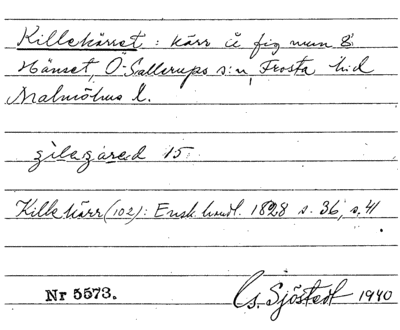 Killekärret : kärr å fig num 8
Hänset, Ö Sallerups s:n, Frosta h:d
Malmöhus l.
15.
Killekärr (102): Ensk. handl. 1828 s. 36, s. 41
Nr 5573.
G. Sjöstedt 1940